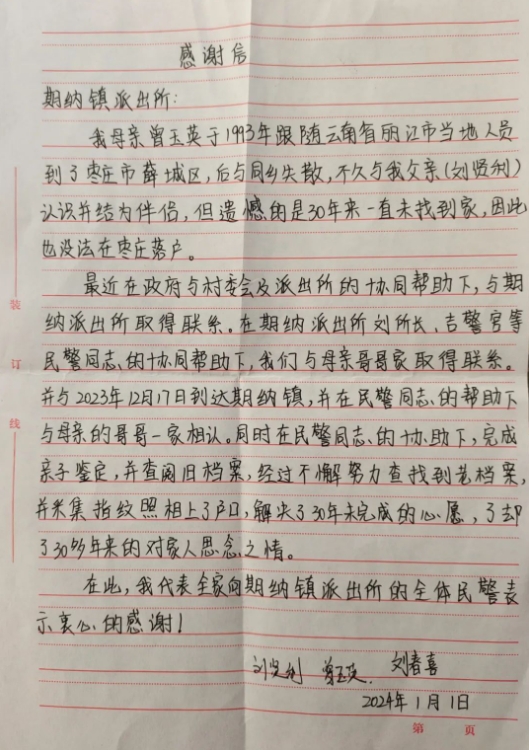 感谢信
期纳镇派出所：
我母亲曾玉英于1993年跟随云南省丽江市当地人员
到了枣庄市薛城区，后与同乡失散，不久与我父亲（刘贤利）
认识并结为伴侣，但遗憾的是30年来一直未找到家，因此
也没法在枣庄落户。
最近在政府与村委会及派出所的协同帮助下，与期
纳派出所取得联系。在期纳派出所刘所长、吉警官等
民警同志的协同帮助下，我们与母亲哥哥家取得联系。
并与2023年12月17日到达期纳镇，并在民警同志的帮助下
与母亲的哥哥一家相认。同时在民警同志的协助下，完成
亲子鉴定，并查阅旧档案，经过不懈努力查找到老档案，
并采集指纹照相上了户口，解决了30年未完成的心愿，了却
了30多年来的对家人思念之情。
在此，我代表全家向期纳镇派出所的全体民警表
示衷心的感谢！
刘贤利 曾玉英. 刘春喜
2024年1月1日
装
订
线
第 页